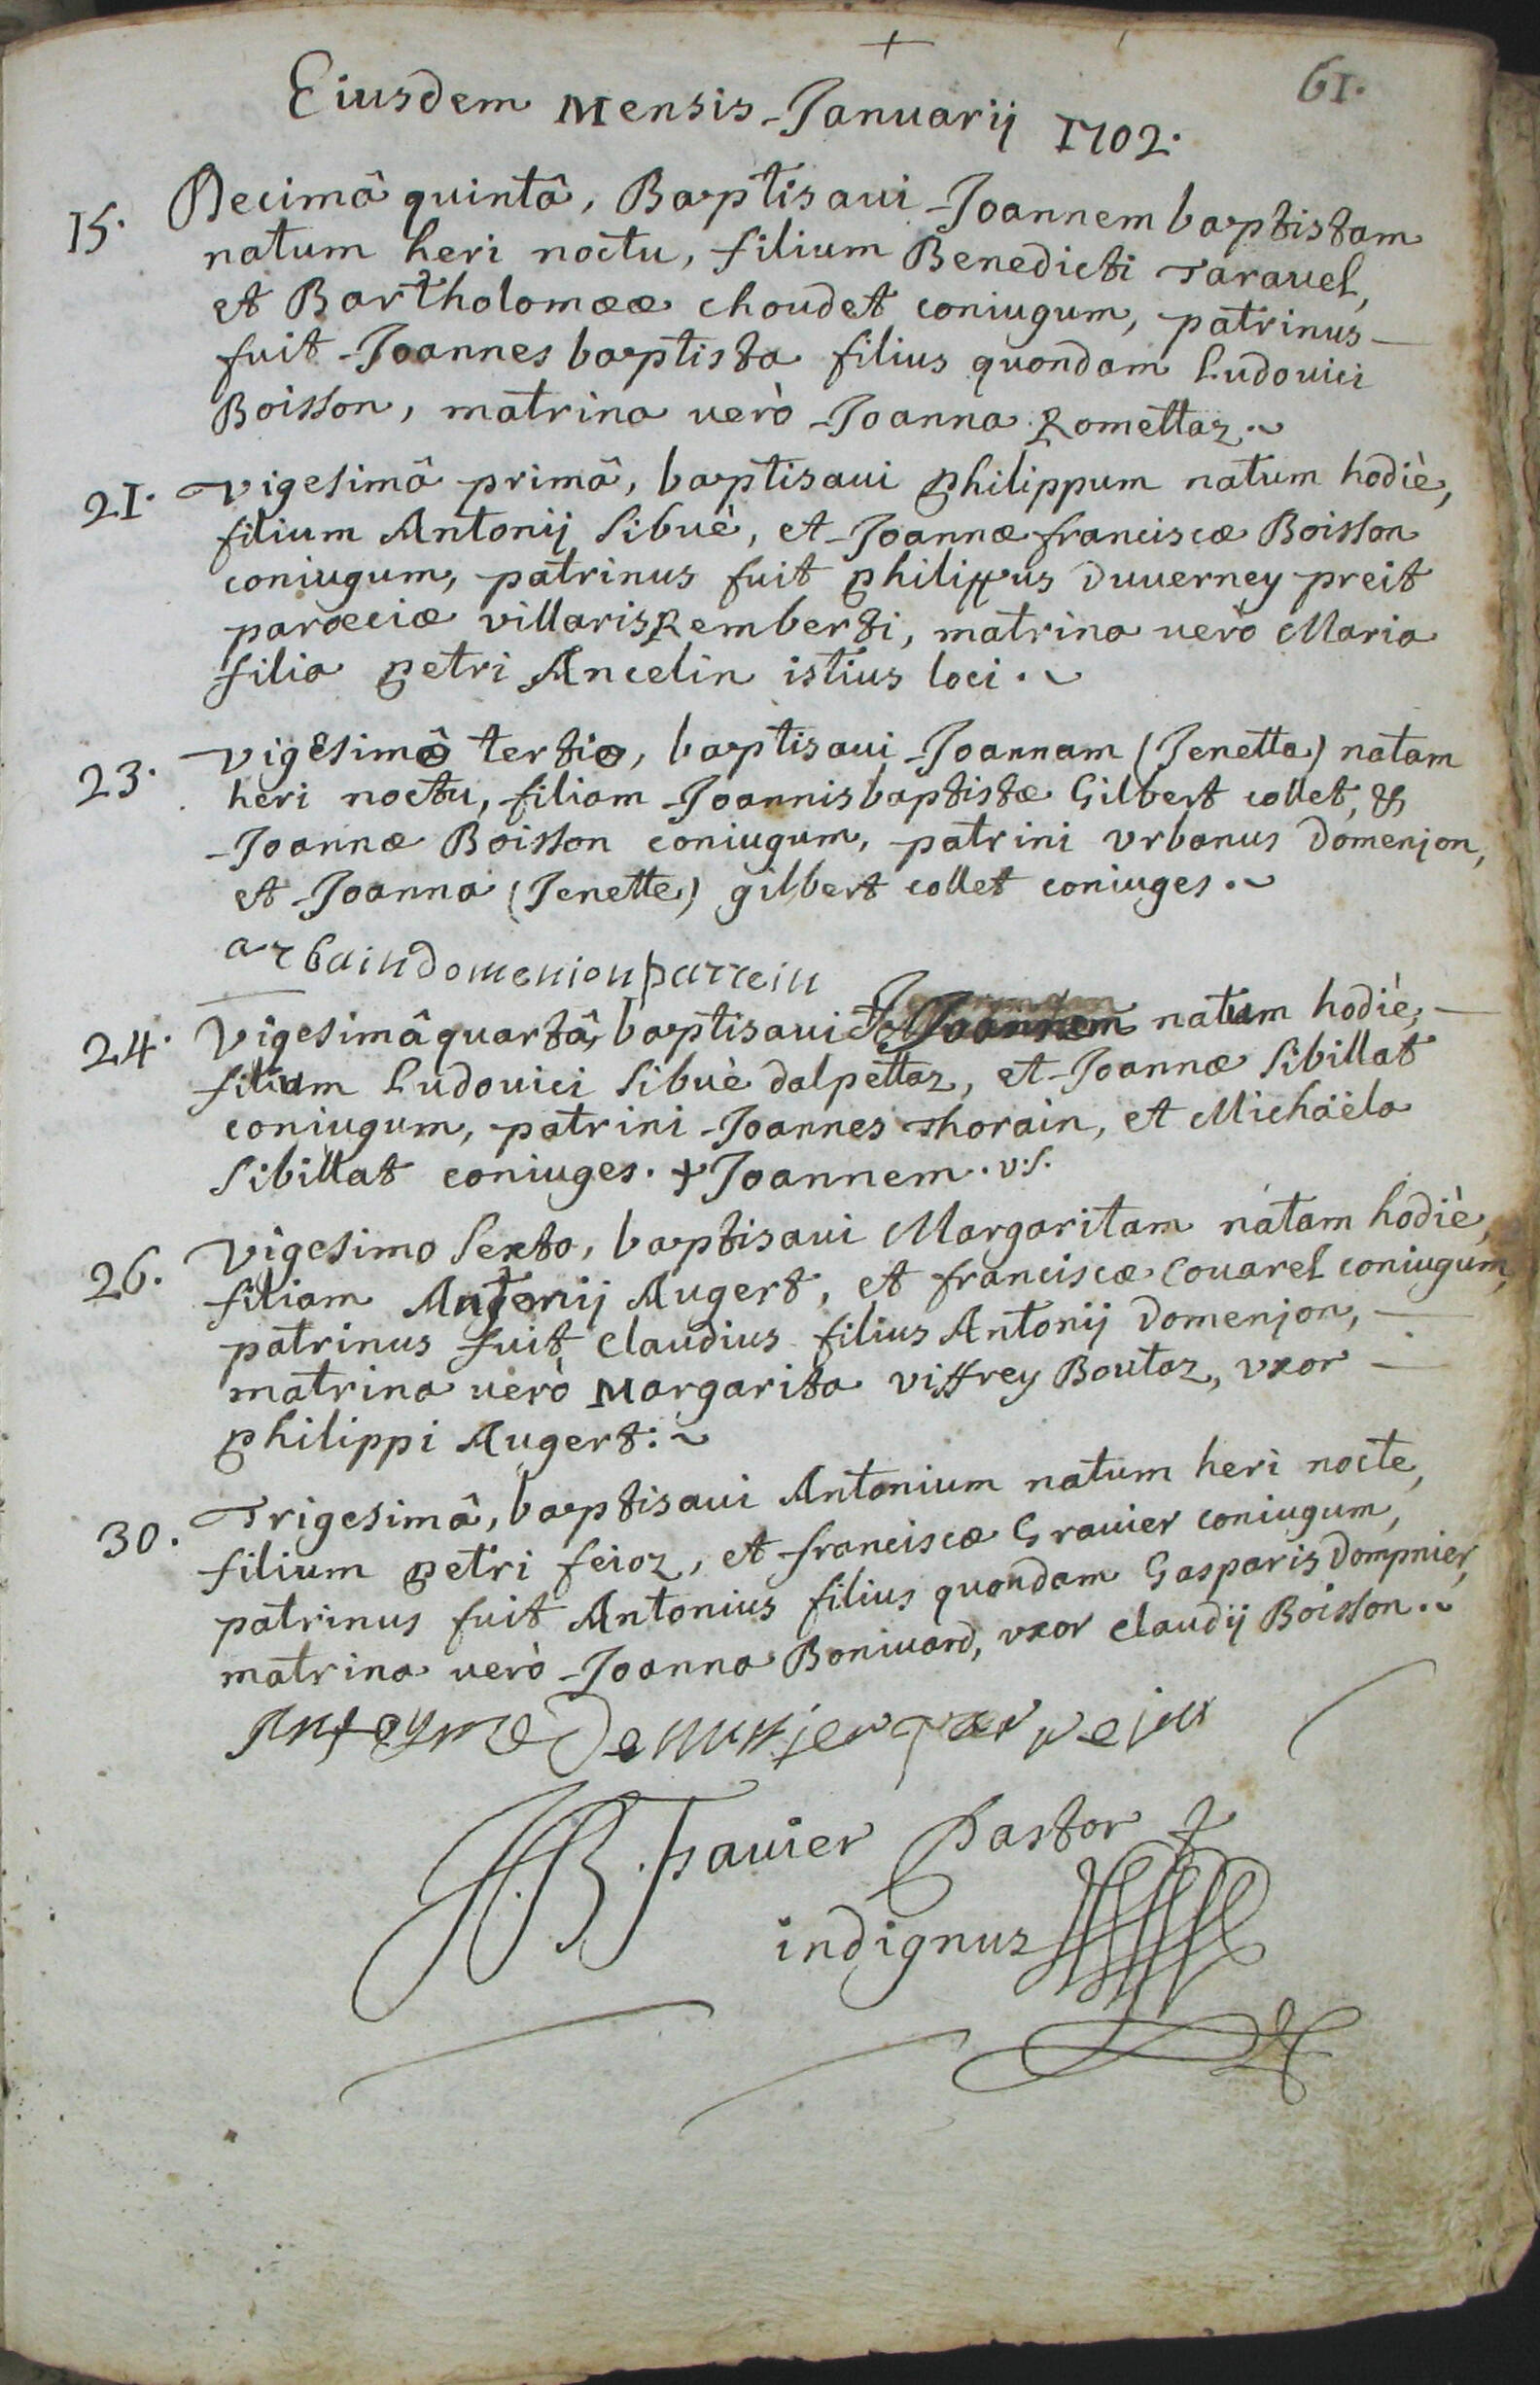 +
61.
Eiusdem Mensis Januarij 1702.
15. Decimâ quintâ, Baptisaui Joannem baptistam
natum heri noctu, filium Benedicti Tarauel,
et Bartholomææ choudet coniugum, patrinus
fuit Joannes baptista filius quondam Ludouici
Boisson, matrina uerò Joanna Romettaz.
21. Vigesimâ primâ, baptisaui philippum natum hodiè,
filium Antonij Sibuè, et Joannæ franciscæ Boisson
coniugum, patrinus fuit philippus duuerney preit
parœciæ villarisRemberti, matrina uerò Maria
filia petri Ancelin istius loci.
23. Vigesimâ tertia, baptisaui Joannam (Jenetta) natam
heri noctu, filiam Joannisbaptistæ Gilbert collet, &
Joannæ Boisson coniugum, patrini vrbanus domenjon,
et Joanna (Jenette) gilbert collet coniuges.
arbain domenion parrein
24. Vigesimâ quartâ, baptisaui Joannem natum hodiè,
filium Ludouici Sibuè dalpettaz, et Joannæ Sibillat
coniugum, patrini Joannes Thorain, et Michaëla
Sibillat coniuges. + Joannem. v.s.
26. Vigesimo Sexto, baptisaui Margaritam natam hodiè,
filiam Antonij Augert, et franciscæ Couarel coniugum,
patrinus fuit claudius filius Antonij domenjon,
matrina uerò Margarita viffrey Boutaz, vxor
philippi Augert.
30. Trigesimâ, baptisaui Antonium natum heri nocte,
filium petri feioz, et franciscæ Grauier coniugum,
patrinus fuit Antonius filius quondam Gasparis Dompnier,
matrina uerò Joanna Boniuard, vxor claudij Boisson.
Antoyne Dounnier parrein
JB. Favier Pastor
indignus